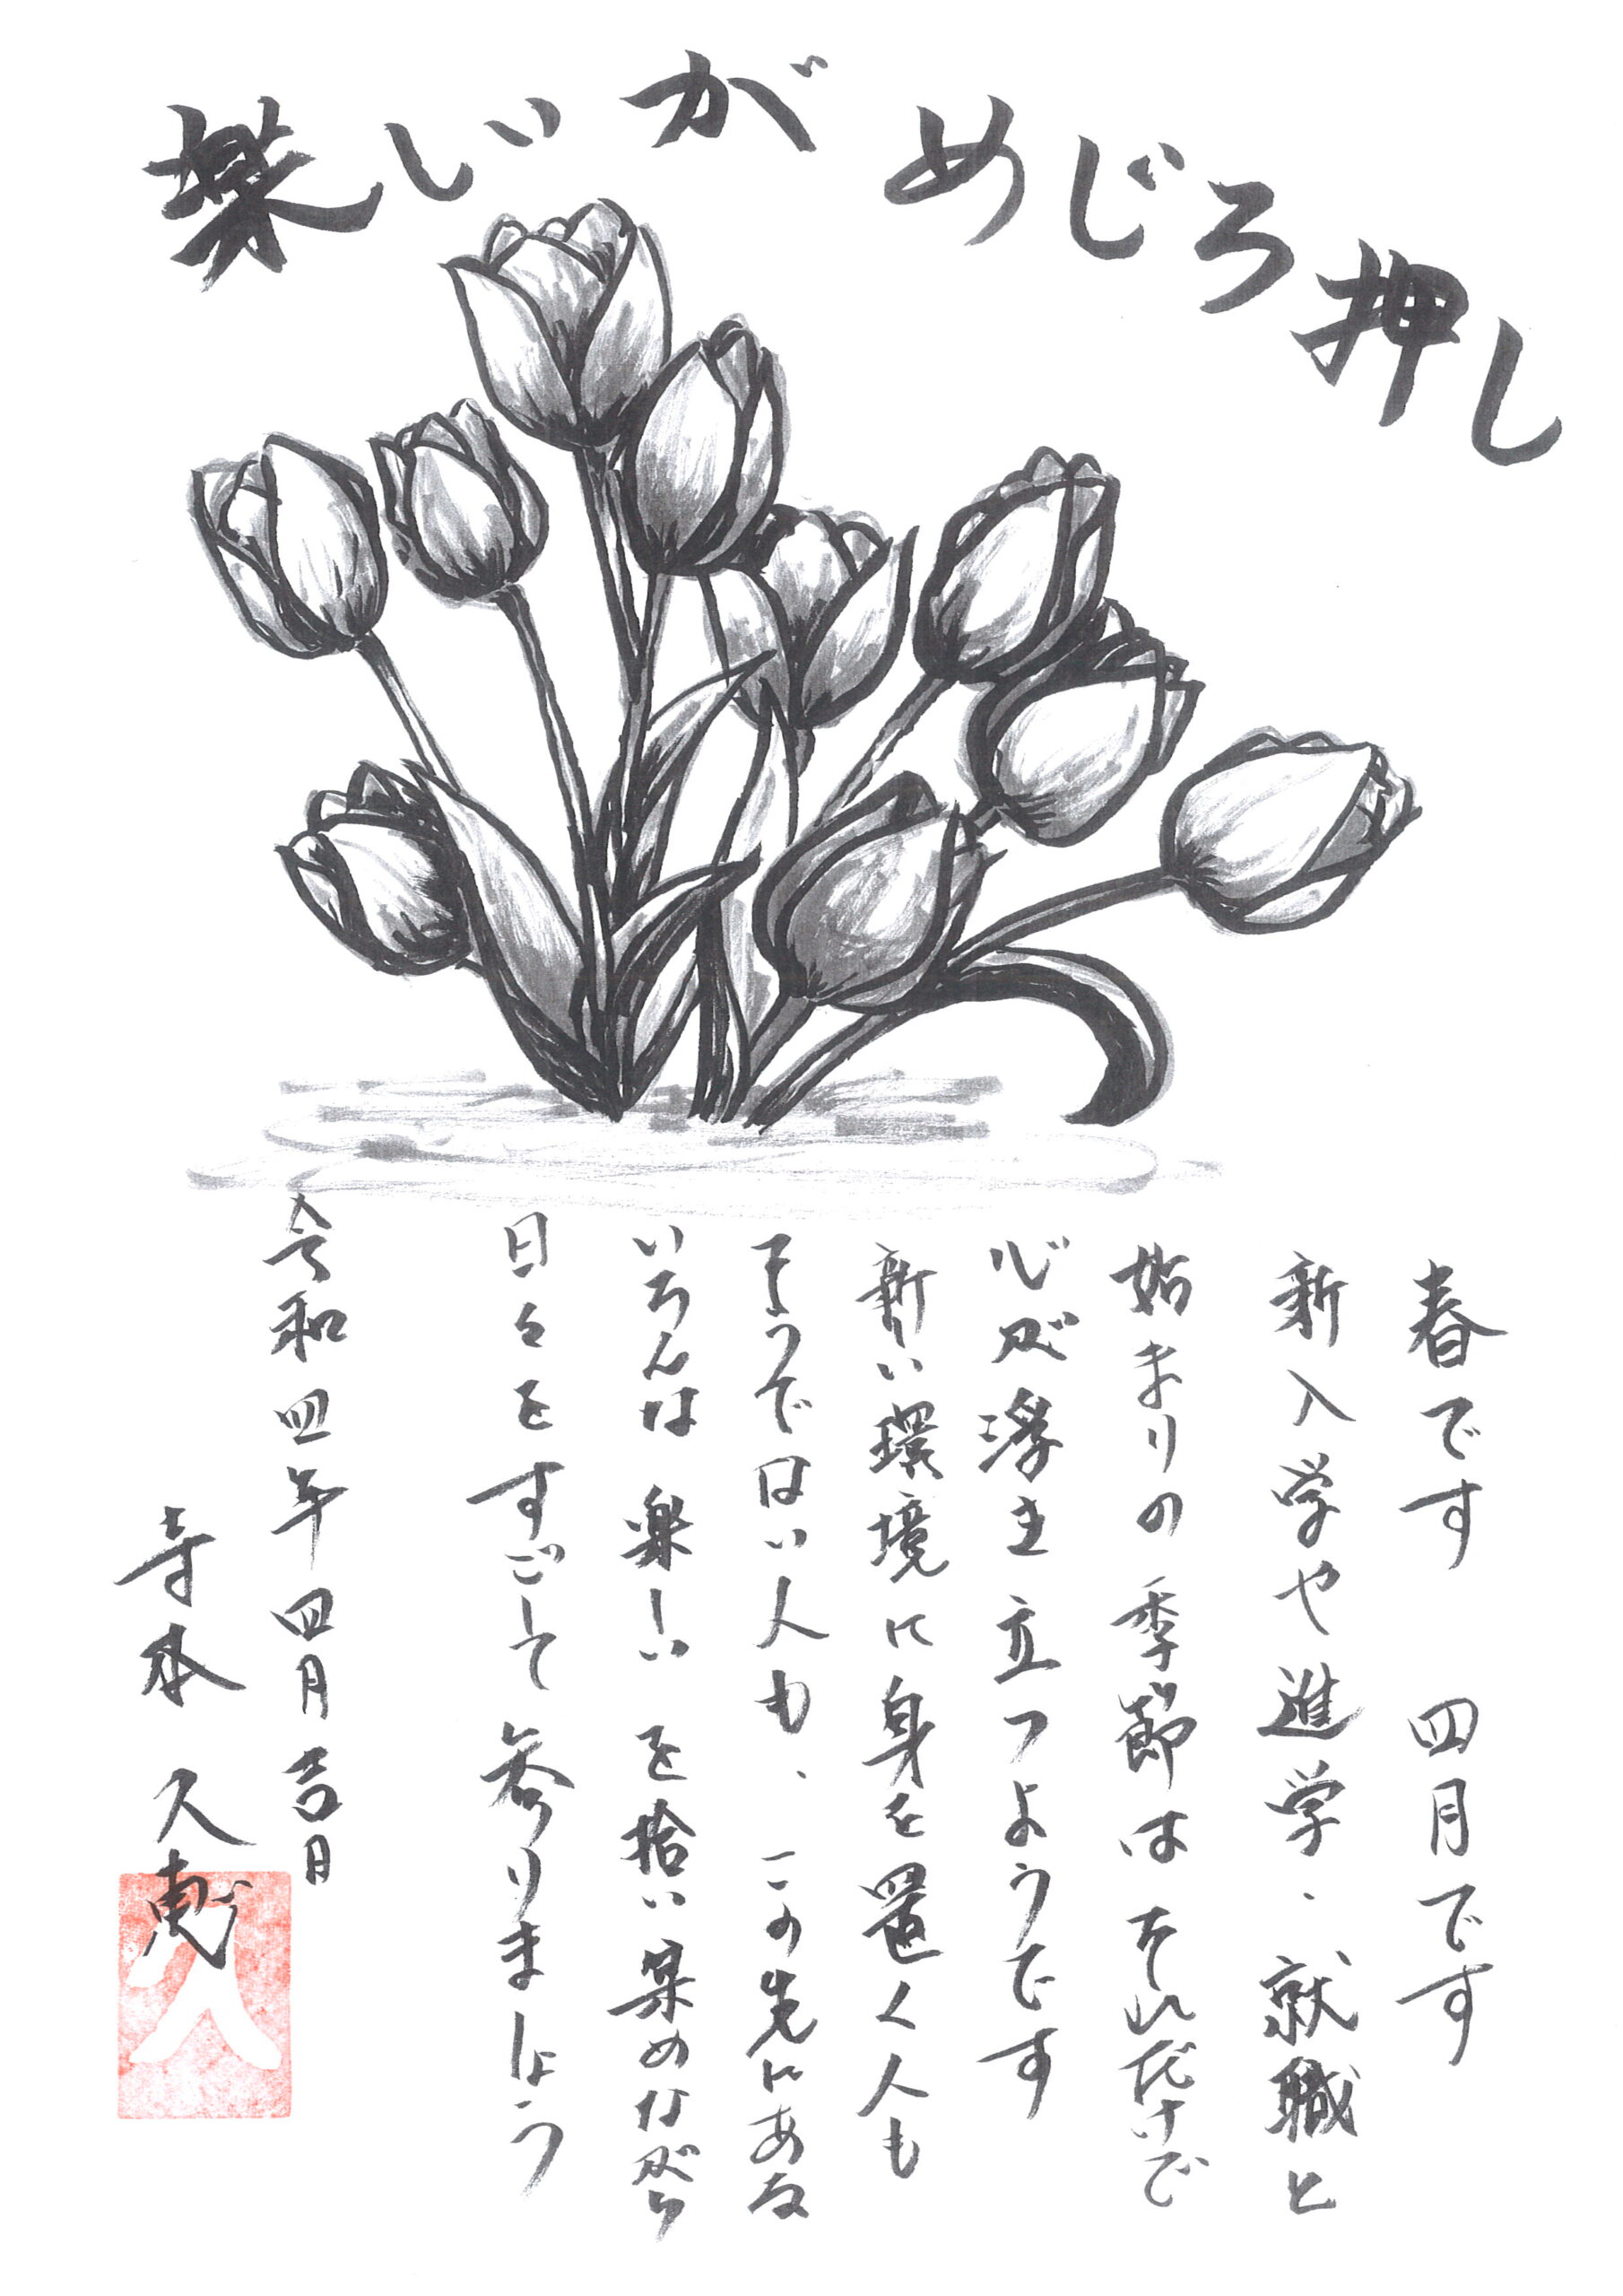 楽しいがめじろ押し
春です 四月です
新入学や進学・就職と
始まりの季節はそれだけで
心が浮き立つようです
新しい環境に身を置く人も
そうではい人も、この先にあるな
いろんは楽しいを拾い集めながら
日々をすごして参りましょう
令和四年四月吉日
寺本 久恵
久